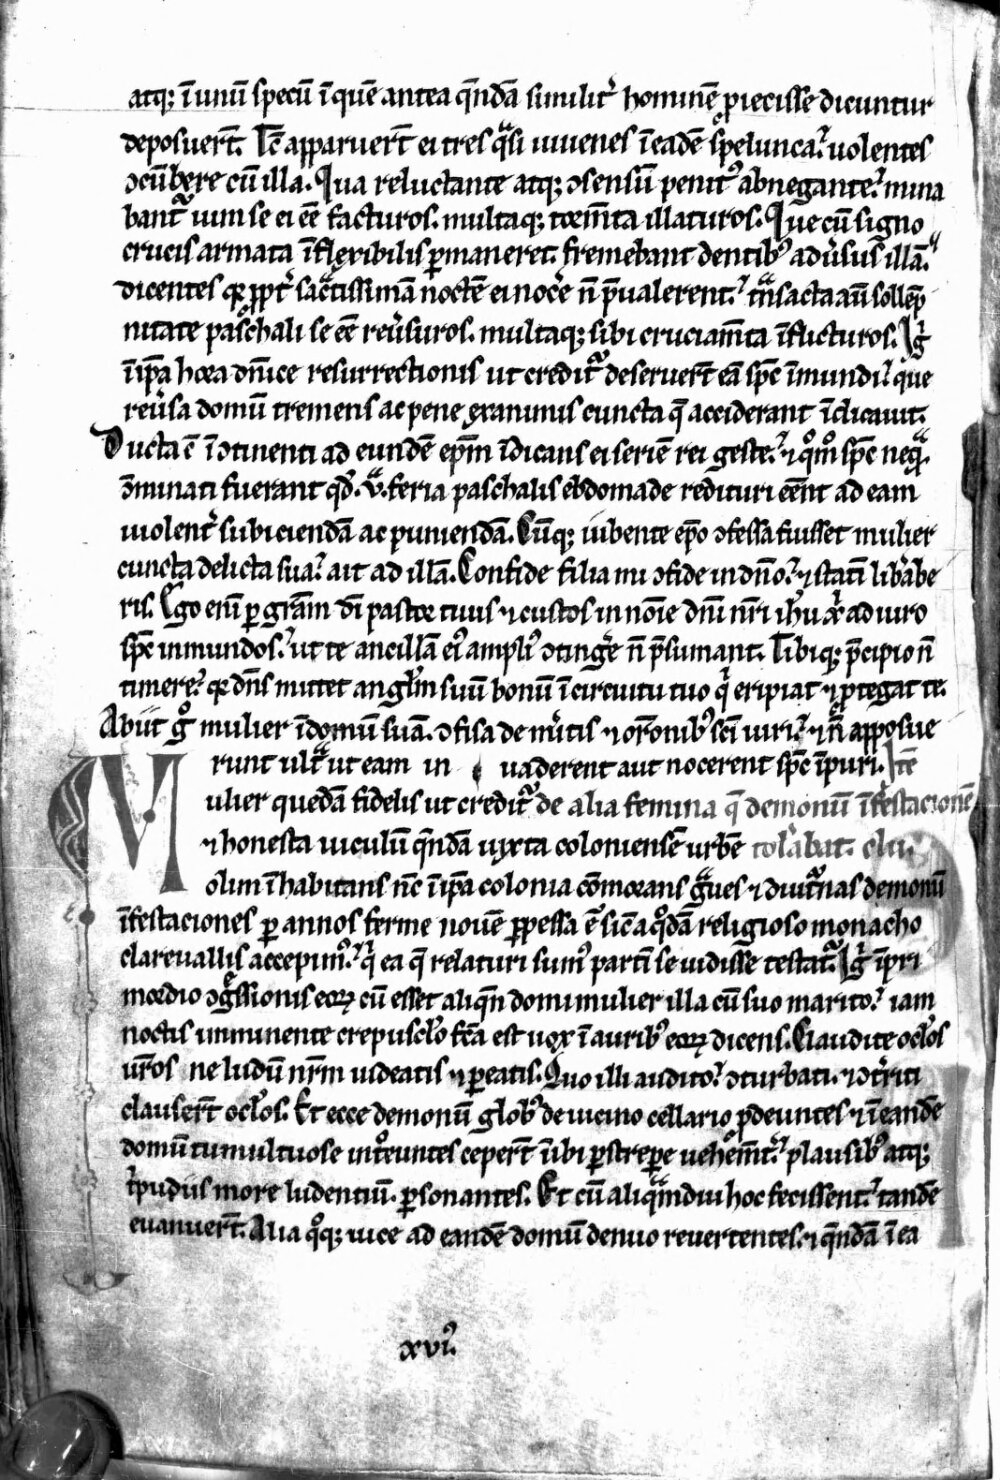 atq; ĩ unũ specũ ĩ quẽ antea q̃ndã similit᷑ hominẽ ꝓiecisse dicuntur
deposuer̃t. Ic̃ apparuer̃t ei tres q̃si iuuenes ĩ eadẽ spelunca.᷑ uolentes
ↄcũb̃ere cũ illa. Qua reluctante atq; ↄsensũ penitꝰ abnegante.᷑ mina
bant᷑ uim se ei eẽ facturos. multaq; torm̃ta illaturos. Que cũ signo
crucis armata ĩflexibilis ꝑmaneret. fremebant dentibꝰ aduersus illã.᷑
dicentes qꝫ ꝓpt᷑ sãctissimã noctẽ ei noc̃e ñ p̃ualerent.᷑ tñsacta aũ sollẽp
nitate paschali se eẽ reũsuros. multaq; sibi cruciam̃ta ĩflicturos. Ig̃
ĩ ip̃a hora dñice resurrectionis ut credit᷑ deseruer̃t eã sp̃c ĩmundi.᷑ que
reũsa domũ tremens ac pene exanimis cuncta q̃ acciderant ĩdicauit.
Ducta ẽ ĩↄtinenti ad eundẽ ep̃m ĩdicans ei seriẽ rei geste.᷑ ⁊ qͦmͦ sp̃c neq̃.
ↄminati fuerant qd̃. v. feria paschalis ebdomade redituri eẽnt ad eam
uiolent᷑ subiciendã ac puniendã. Cũq; iubente ep̃o ↄfessa fuisset mulier
cuncta delicta sua.᷑ ait ad illã. Confide filia mi ↄfide in dño.᷑ ⁊ statĩ lib̃abe
ris. Ego eni ꝑ gr̃am dĩ pastor tuus ⁊ custos in noĩe dñi nr̃i ih̃u xp̃i adiuro
sp̃c inmundos.᷑ ut te ancillã eiꝰ ampliꝰ ↄting̃e ñ p̃sumant. Tibiq; p̃cipio ñ
timere.᷑ qꝫ dñs mittet angl̃m suũ bonũ ĩ circuitu tuo qͥ eripiat ⁊ ꝓtegat te.
Abiit gͦ mulier ĩ domũ suã. ↄfisa de m̃itis ⁊ or̃onibꝰ sc̃i uiri.᷑ ⁊ ñ apposue
runt ult᷑ ut eam in uaderent aut nocerent sp̃c ĩpuri. Itẽ
de alia femina q̃ demonũ ĩfestacionẽ
Mulier quedã fidelis ut credit᷑
tol̃abat.
⁊ honesta uiculũ q̃ndã iuxta coloniensẽ urbẽ
olim ĩhabitans nc̃ ĩ ip̃a colonia cõmorans g̃ues ⁊ diut᷑nas demonũ
ĩfestaciones ꝑ annos ferme nouẽ ꝑpessa ẽ sic᷑ a qͦdã religioso monacho
clareuallis accepimꝰ.᷑ qͥ ea q̃ relaturi sumꝰ partĩ se uidisse testat᷑. Ig̃ ĩ pri
mordio ↄg̃ssionis eoꝝ cũ esset aliqñ domi mulier illa cũ suo marito.᷑ iam
noctis imminente crepusclo fc̃a est uox ĩ auribꝰ eoꝝ dicens. Claudite oclos
ur̃os ne ludũ nr̃m uideatis ⁊ ꝑeatis. Quo illi audito.᷑ ↄturbati. ⁊ ↄt᷑riti
clauser̃t oclos. Et ecce demonũ globꝰ de uicino cellario ꝓdeuntes ⁊ ĩ eandẽ
domũ tumultuose int᷑euntes ceper̃t ĩbi ꝑstrepe uehem̃t᷑.᷑ plausibꝰ atq;
t᷑pudiis more ludentiũ. ꝑsonantes. Et cũ aliq̃mdiu hoc fecissent.᷑ tandẽ
euanuer̃t. Alia qͦq; uice ad eandẽ domũ denuo reuertentes. ⁊ q̃ndã ĩ ea
xvi.᷑